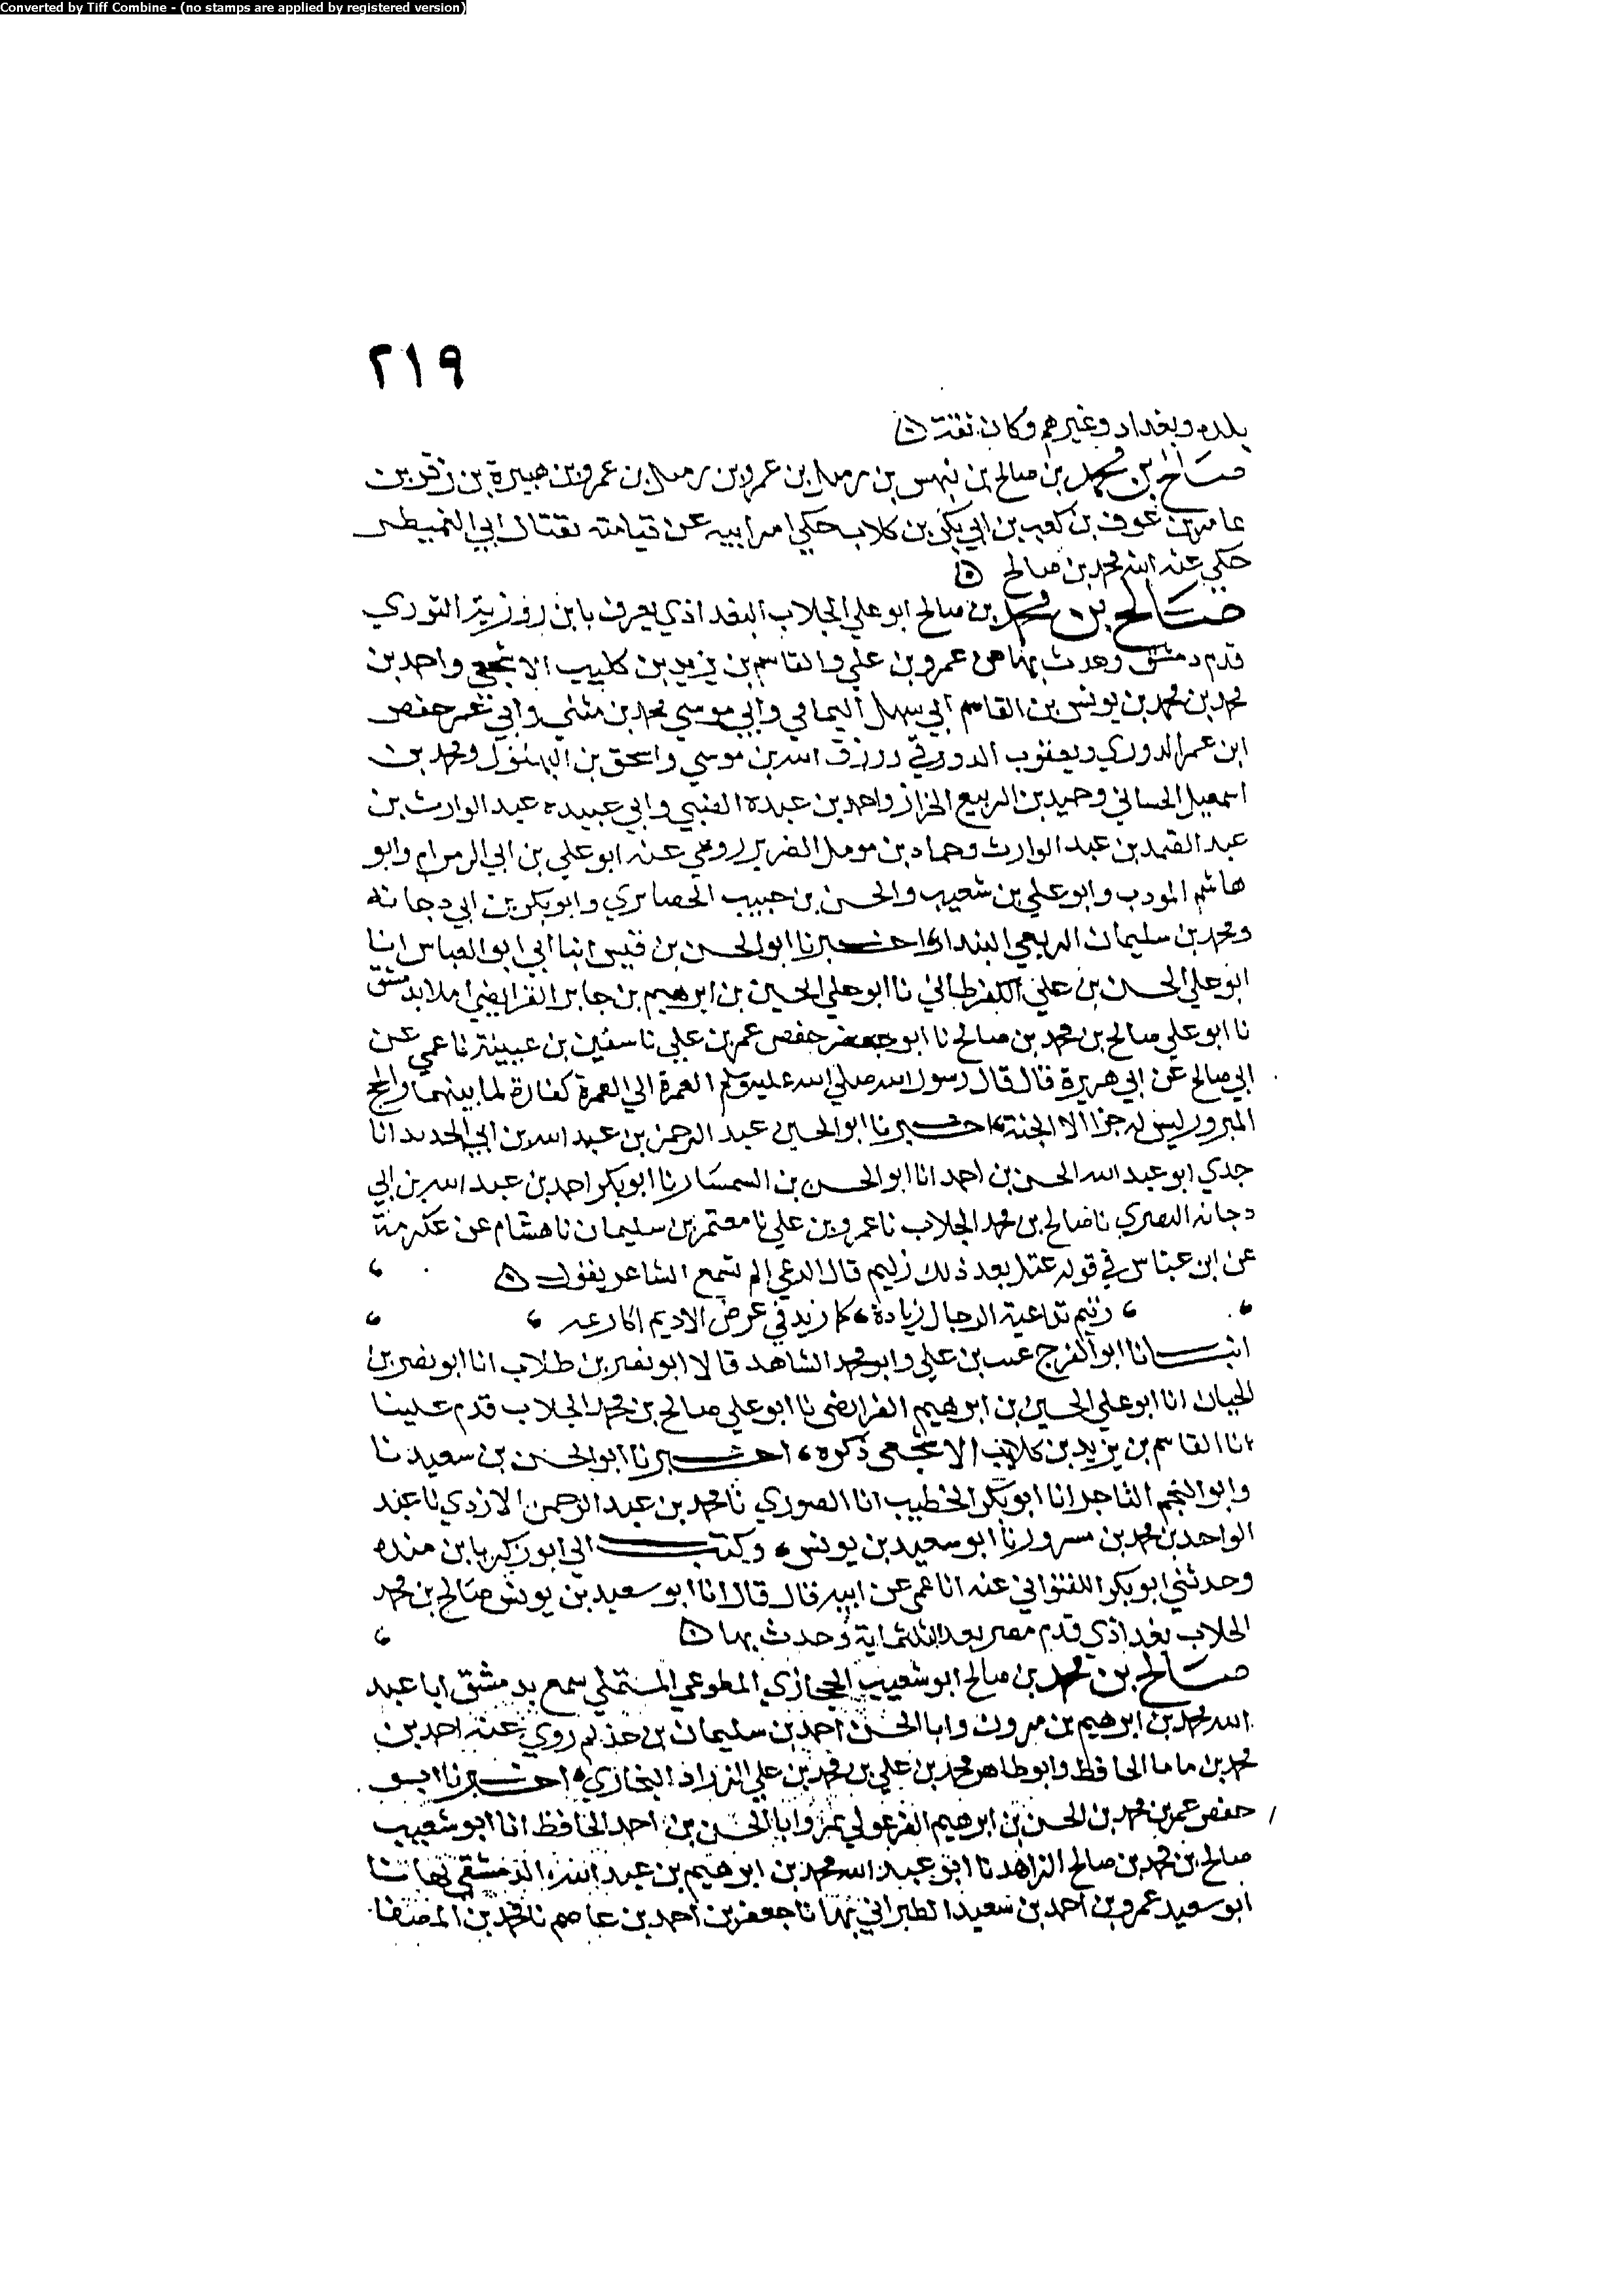 Converted by Tiff Combine - (no stamps are applied by registered version)
٢١٩
بلده وبغداد وغيرهم وكان ثقة
صالح بن محمد بن صالح بن بن عمرو بن بن عمرو بن هبيرة بن زفر بن
عامر بن عوف بن كعب بن ابي بكر بن كلاب حكي عن ابيه عن قيامته بقتال ابي العميطر
حكي عنه ابنه محمد بن صالح
صالح بن محمد بن صالح ابو علي الجلاب البغداذي يعرف بابن التوري
قدم دمشق وحدث بها عن عمرو بن علي والقاسم بن يزيد بن كليب الاشجعي واحمد بن
محمد بن محمد بن يونس بن القاسم ابي سهل اليمامي وابي موسي محمد بن مثني وابي عمر حفص
ابن عمر الدوري ويعقوب الدورقي ورزق الله بن موسي واسحق بن البهلول ومحمد بن
اسمعيل الحساني وحميد بن الربيع الخزاز واحمد بن عبدة الضبي وابي عبيده عبد الوارث بن
عبد الصمد بن عبد الوارث وحماد بن مومل الضرير روي عنه ابو علي بن ابي الرمرام وابو
هاشم المودب وابو علي بن شعيب والحسن بن حبيب الحصايري وابو بكر بن ابي دجانه
ومحمد بن سليمان الربعي البندار اخبرنا ابو الحسن بن قبيس انبا ابي ابو العباس انبا
ابو علي الحسن بن علي الكفرطابي نا ابو علي الحسين بن ابرهيم بن جابر الفرايضي املا بدمشق
نا ابو علي صالح بن محمد بن صالح نا ابو حفص عمر بن علي نا سفين بن عيينة نا عن
ابي صالح عن ابي هريرة قال قال رسول الله صلي الله عليه وسلم العمرة الي العمرة كفارة لما بينهما والحج
المبرور ليس له جزا الا الجنة اخبرنا ابو الحسين عبد الرحمن بن عبد الله بن ابي الحديد انا
جدي ابو عبد الله الحسن بن احمد انا ابو الحسن بن السمسار نا ابو بكر احمد بن عبد الله بن ابي
دجانه البصري نا صالح بن محمد الجلاب نا عمرو بن علي نا معتمر بن سليمان نا هشام عن عكرمة
عن ابن عباس في قوله عتل بعد ذلك زنيم قال الدعي الم تسمع الشاعر يقول
زنيم تداعته الرجال زيادة كما زيد في عرض الاديم اكارعه
انبانا ابو الفرج غيث بن علي وابو محمد الشاهد قالا ابو نصر بن طلاب انا ابو نصر بن
الجبان انا ابو علي الحسين بن ابرهيم الفرايضي نا ابو علي صالح بن محمد الجلاب قدم علينا
انا القاسم بن يزيد بن كلاب الاشجعي ذكره اخبرنا ابو الحسن بن سعيد نا
وابو النجم التاجر انا ابو بكر الخطيب انا الصوري نا محمد بن عبد الرحمن الازدي نا عبد
الواحد بن محمد بن مسرور نا ابو سعيد بن يونس وكتب الي ابو زكريا بن منده
وحدثني ابو بكر اللفتواني عنه انا عمي عن ابيه قال قال انا ابو سعيد بن يونس صالح بن محمد
الجلاب بغداذي قدم مصر بعد الثلثماية وحدث بها
صالح بن محمد بن صالح ابو شعيب الحجازي المطوعي المستملي سمع بدمشق ابا عبد
الله محمد بن ابرهيم بن مروان وابا الحسن احمد بن سليمان بن حذلم روي عنه احمد بن
محمد بن ماما الحافظ وابو طاهر محمد بن علي بن محمد بن علي الزراد البخاري اخبرنا ابو
حفص عمر بن محمد بن الحسن بن ابرهيم الفرغولي بمرو ابا الحسن بن احمد الحافظ انا ابو شعيب
صالح بن محمد بن صالح الزاهد نا ابو عبد الله محمد بن ابرهيم بن عبد الله الدمشقي بها نا
ابو سعيد عمرو بن احمد بن سعيد الطبراني بها نا جعفر بن احمد بن عاصم نا محمد بن المصفا